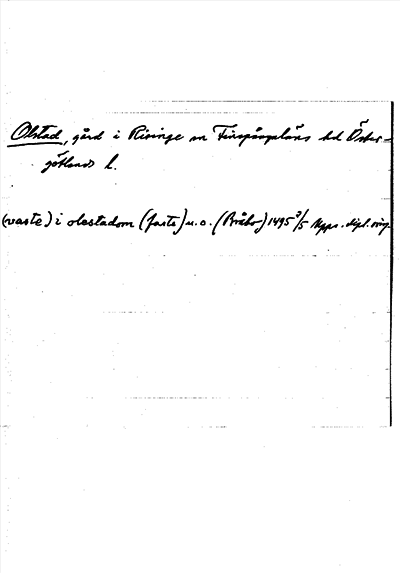 Olstad, gård i Risinge sn Finspångaläns hd Öster-
götlands l.
(vaste) i olestadom (faste) u.o. (Bråbo) 1495 3/5 Upps. dipl. orig.